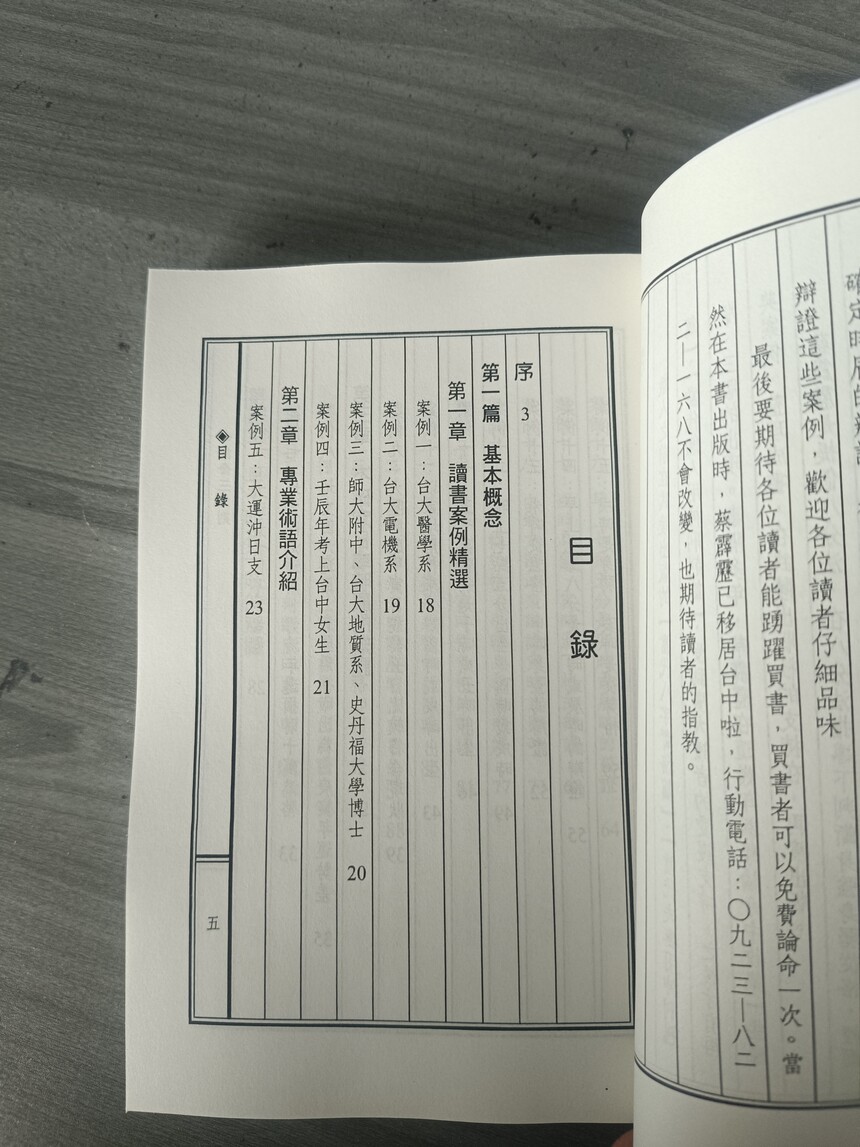 辯證這些案例，歡迎各位讀者仔細品味
最後要期待各位讀者能踴躍買書，買書者可以免費論命一次。當
然在本書出版時，蔡霹靂已移居台中啦，行動電話：〇九二三—八二
二—一六八不會改變，也期待讀者的指教。
目錄
序 3
第一篇 基本概念
第一章 讀書案例精選
案例一：台大醫學系 18
案例二：台大電機系 19
案例三：師大附中、台大地質系、史丹福大學博士 20
案例四：壬辰年考上台中女生 21
第二章 專業術語介紹
案例五：大運沖日支 23
◈目錄
五